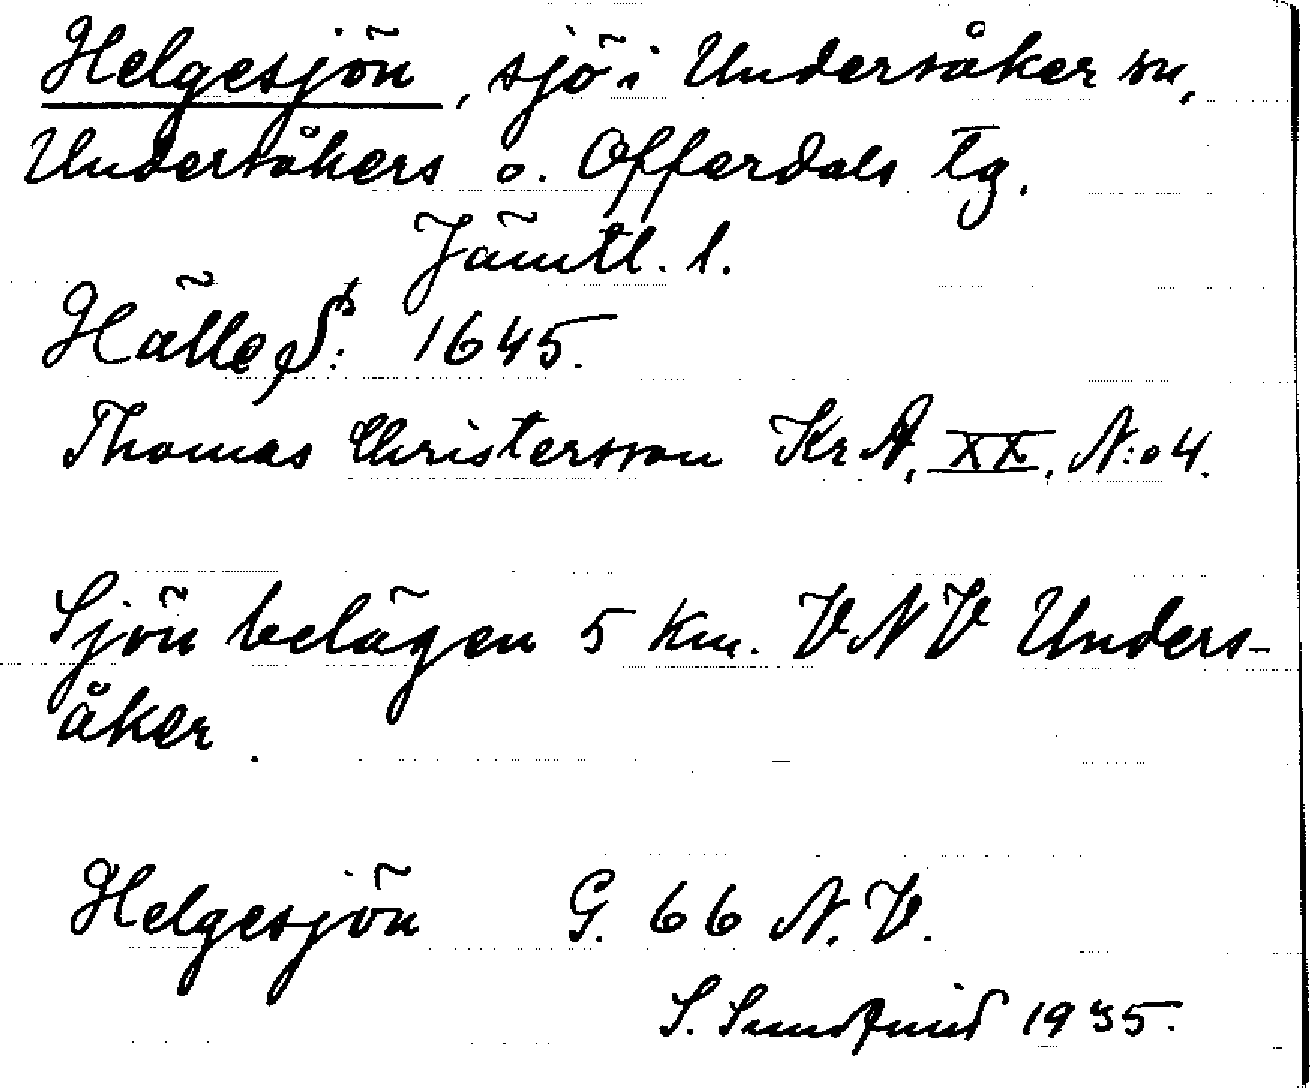 Helgesjön, sjö i Undersåker sn,
Undersåkers o. Offerdals tg.
Jämtl. l.
Hälle 1645.
Thomas Christersson KrA, XX, N:o 4.
Sjön belägen 5 km. VNV Unders-
åker.
Helgesjön G. 66 N.V.
S. Sundquist 1935.